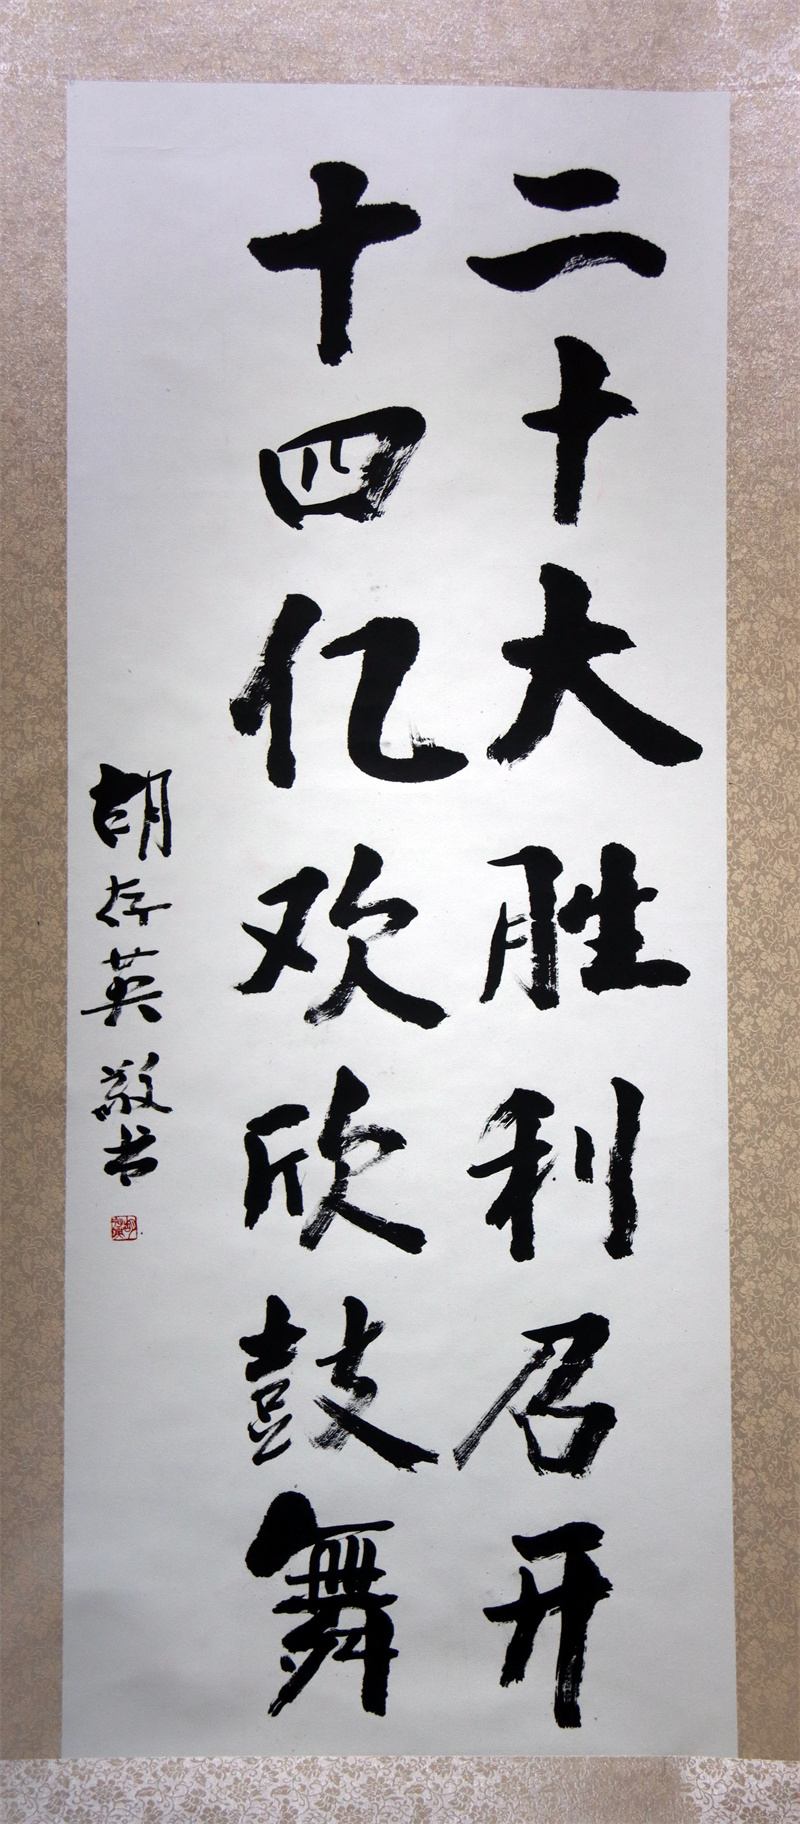 二十大胜利召开
十四亿欢欣鼓舞
胡存英敬书